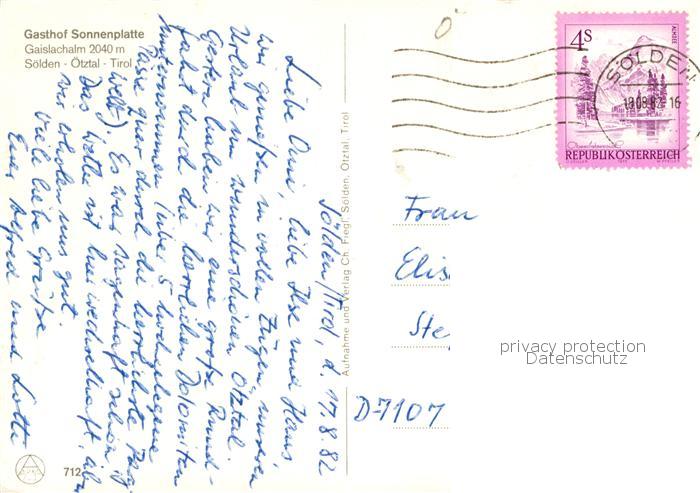 Gasthof Sonnenplatte
Gaislachalm 2040 m
Sölden - Ötztal - Tirol
Sölden/Tirol, d. 17.8.82
Liebe Omi, liebe Ilse und Hans,
wir genießen in vollen Zügen unseren
Urlaub im wunderschönen Ötztal.
Gestern haben wir eine große Rund-
fahrt durch die herrlichen Dolomiten
unternommen (über 5 hochgelegene
Pässe quer durch die herrlichste Berg-
welt). Es war sagenhaft schön
Das Wetter ist hier wechselhaft, aber
wir erholen uns gut.
Viele liebe Grüße
Eure Alfred und Lotte
Aufnahme und Verlag Ch. Fiegl, Sölden, Ötztal, Tirol
712
4S
ALMSEE
Oberösterreich
REPUBLIK ÖSTERREICH
SÖLDEN
18.08.82-16
Frau
Elis
Ste
D-7107
privacy protection
Datenschutz